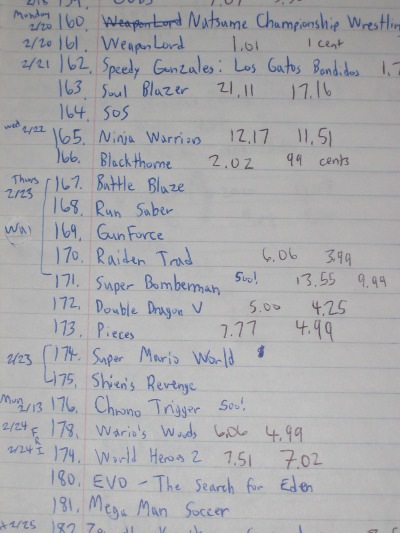 Monday 2/20 160. WeaponLord Natsume Championship Wrestlin
2/20 161. WeaponLord 1.01 1 cent
2/21 162. Speedy Gonzales: Los Gatos Bandidos 1.7
163. Soul Blazer 21.11 17.16
164. SOS
wed 2/22 165. Ninja Warriors 12.17 11.51
166. Blackthorne 2.02 99 cents
Thurs 2/23 167. Battle Blaze
168. Run Saber
169. GunForce
170. Raiden Trad 6.06 3.99
171. Super Bomberman 500! 13.55 9.99
172. Double Dragon V 5.00 4.25
173. Pieces 7.77 4.99
2/23 174. Super Mario World
175. Shien's Revenge
Mon 2/13 176. Chrono Trigger 500!
2/24 F 178. Wario's Woods 6.06 4.99
R
2/24 I 179. World Heroes 2 7.51 7.02
180. EVO - The Search for Eden
181. Mega Man Soccer
2/25 182.